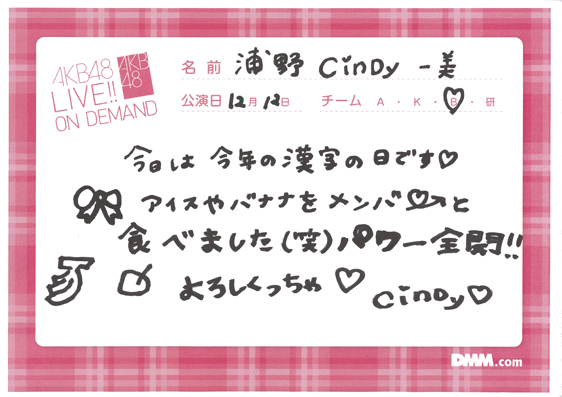 AKB48
LIVE!!
ON DEMAND
AKB
48
名前 浦野 CinDy 一美
公演日 12月 12日 チーム A・K・B・研
今日は 今年の漢字の日です♡
アイスやバナナを メンバ♡ーと
食べました(笑) パワー全開!!
よろしくっちゃ ♡
CinDy♡
DMM.com